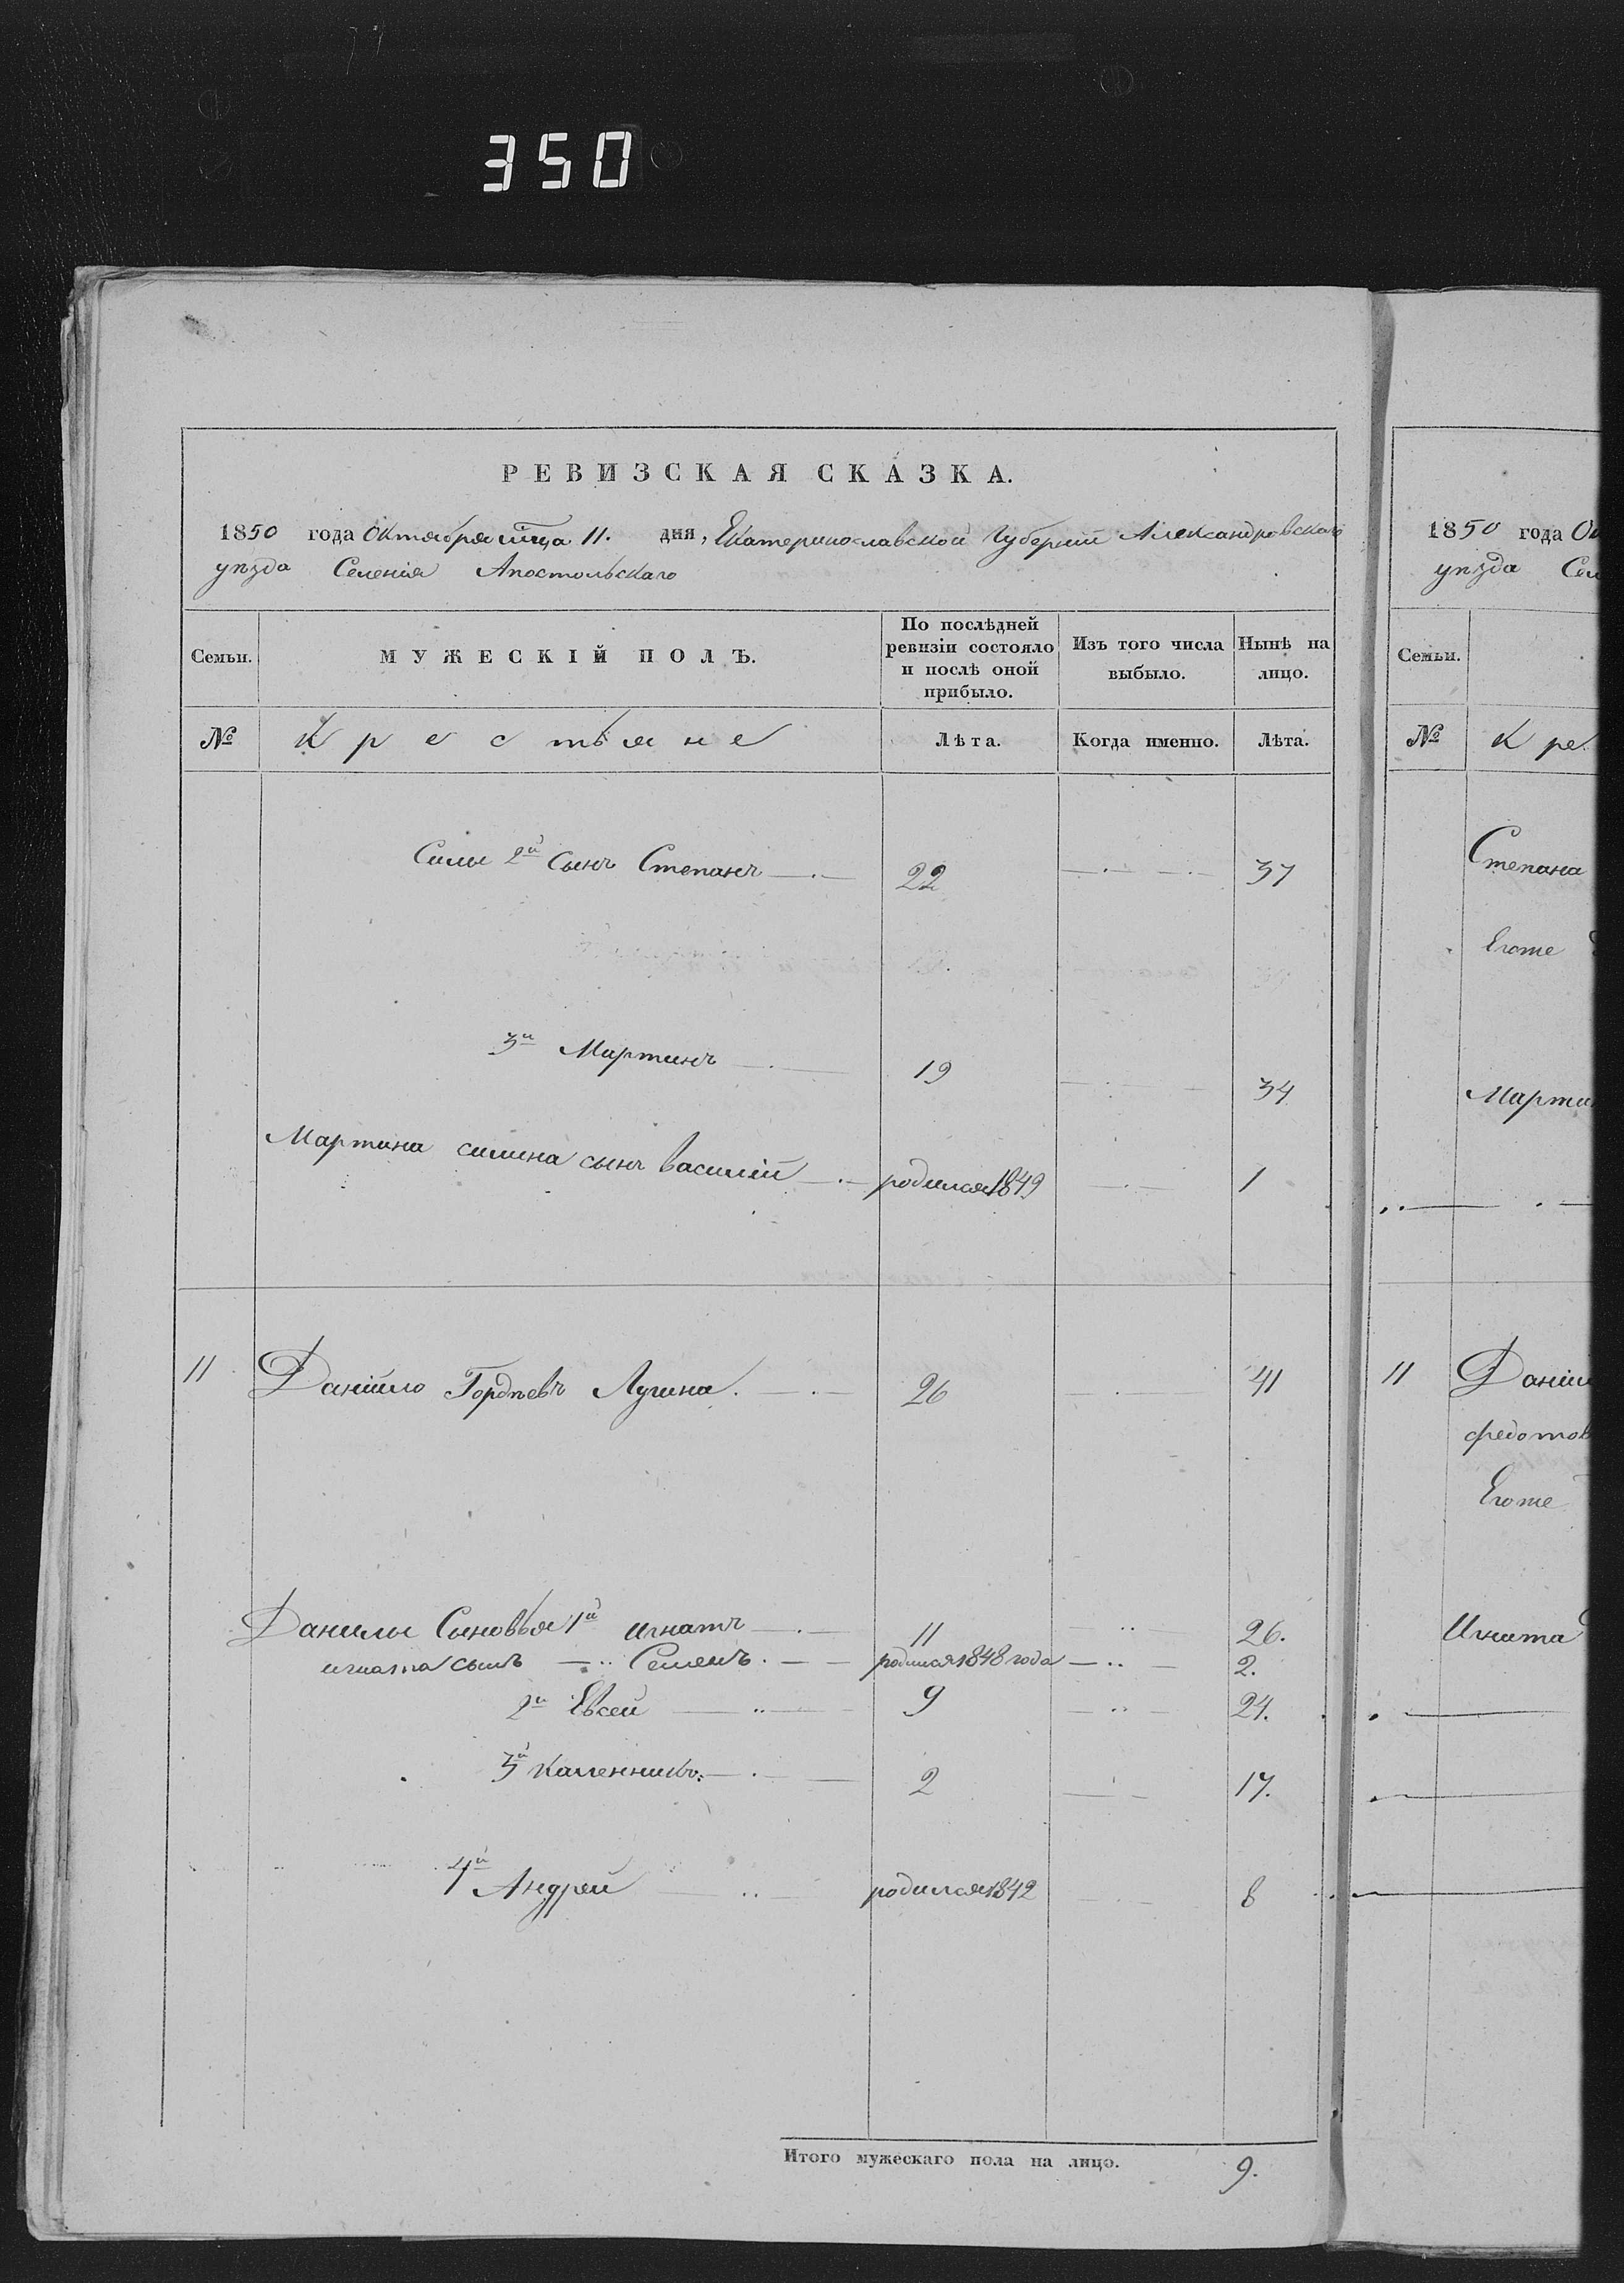 350
РЕВИЗСКАЯ СКАЗКА.
1850 года Октября мѣсяца 11. дня, Екатеринославской Губерніи Александровскаго
уѣзда Селенія Апостольскаго
Семьи. МУЖЕСКІЙ ПОЛЪ. По послѣдней ревизіи состояло и послѣ оной прибыло. Изъ того числа выбыло. Нынѣ на лицо.
№ Крестьяне Лѣта. Когда именно. Лѣта.
Силы 2й Сынъ Степанъ 22 37
3й Мартинъ 19 34
Мартина силина сынъ василій родился 1849 1
11 Даніило Гордѣевъ Лугина. 26 41
Данилы Сыновья 1й игнатъ 11 26.
игната сынъ Семенъ. родился 1848 года 2.
2й Евсей 9 24.
3й Каленникъ: 2 17.
4й Андрей родился 1842 8
Итого мужескаго пола на лицо. 9.
1850 года Ок
уѣзда Сел
Семьи.
№ Кре
Степана
Егоже
Марти
11 Даніи
федотов
Егоже
Игната